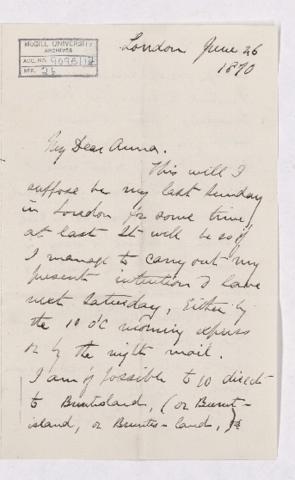 McGILL UNIVERSITY
ARCHIVES
ACC. NO. 
REF. 26
London June 26
1870
My Dear Anna.
This will I
suppose be my last Sunday
in London for some time,
at least it will be so if
I manage to carry out my
present intention & leave
next Saturday, Either by
the 10 o'c morning express
or by the night mail.
I am if possible to go direct
to Burntisland, (or Burnt-
island, or Bruntis-land,